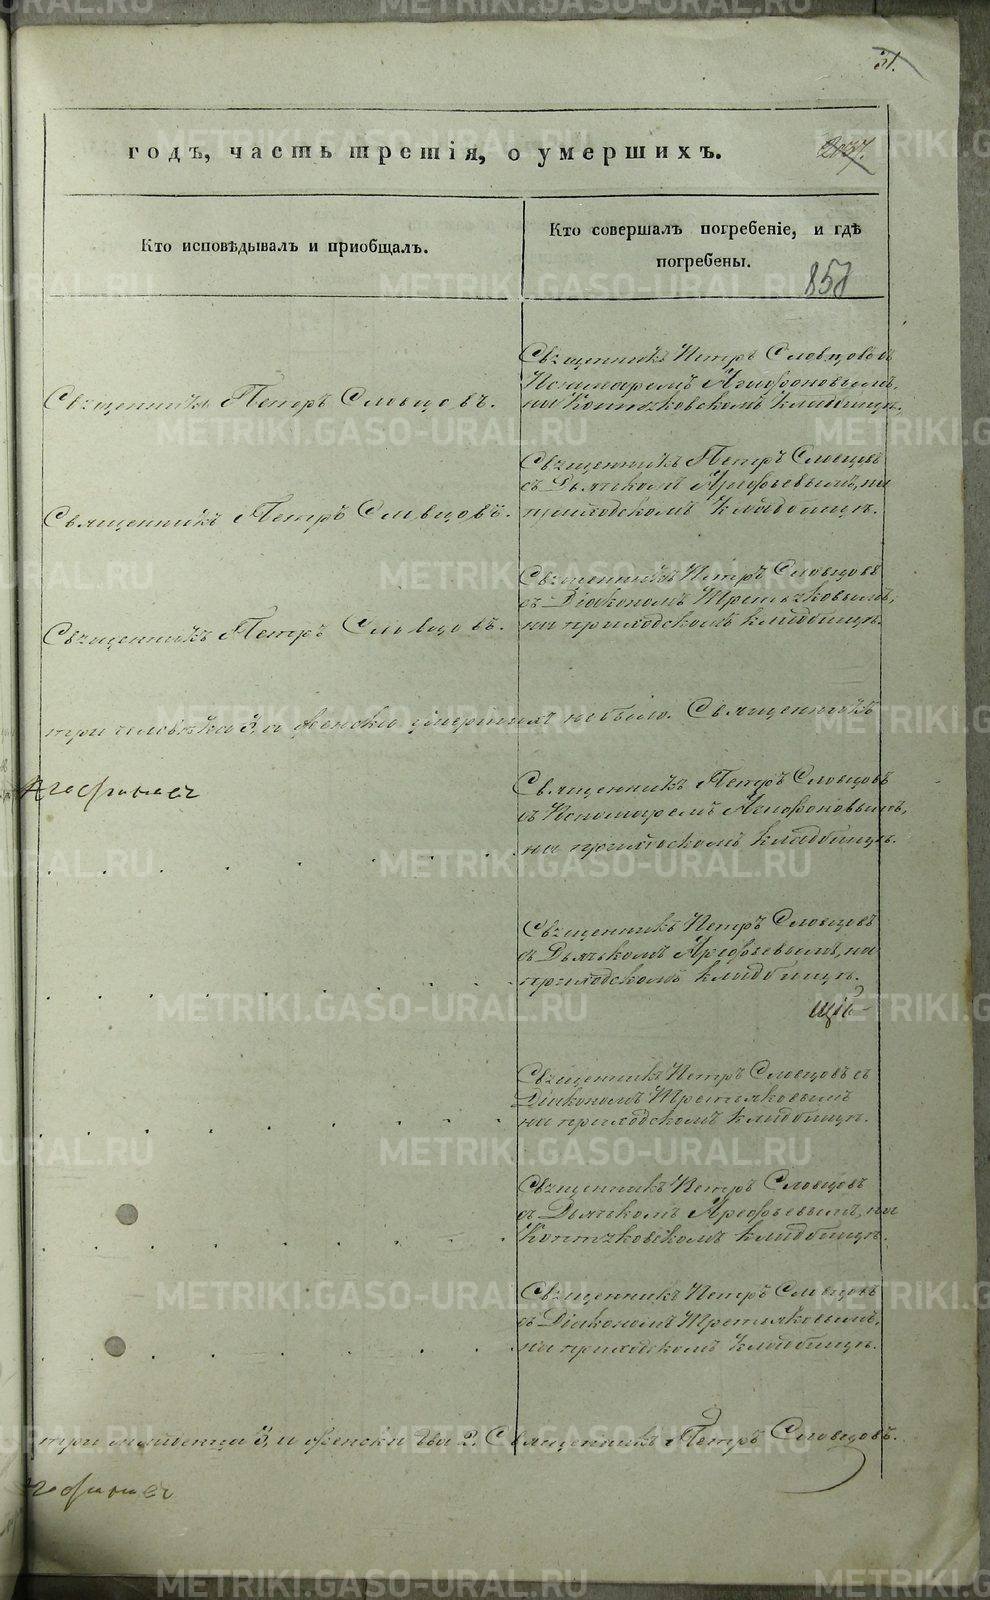 31.
годъ, часть третія, о умершихъ.
2037.
Кто исповѣдывалъ и приобщалъ.
Кто совершалъ погребеніе, и гдѣ
погребены.
858
Священникъ Петръ Словцовъ съ
Пономаремъ Агафоновымъ,
на Коптяковскомъ кладбищѣ.
Священникъ Петръ Словцовъ.
Священникъ Петръ Словцовъ
съ Дьячкомъ Арефьевымъ, на
приходскомъ кладбищѣ.
Священникъ Петръ Словцовъ.
Священникъ Петръ Словцовъ
съ Діакономъ Третьяковымъ,
на приходскомъ кладбищѣ.
Священникъ Петръ Словцовъ.
три человѣка 3, а женска умершихъ небыло. Священникъ
Священникъ Петръ Словцовъ
съ Пономаремъ Агафоновымъ,
на приходскомъ кладбищѣ.
Священникъ Петръ Словцовъ
съ Дьячкомъ Арефьевымъ, на
приходскомъ кладбищѣ.
Священникъ Петръ Словцовъ съ
Діакономъ Третьяковымъ
на приходскомъ кладбищѣ.
Священникъ Петръ Словцовъ
съ Дьячкомъ Арефьевымъ, на
Коптяковскомъ кладбищѣ.
Священникъ Петръ Словцовъ
съ Діакономъ Третьяковымъ,
на приходскомъ кладбищѣ.
три младенца 3, и женска два 2. Священникъ Петръ Словцовъ.
METRIKI.GASO-URAL.RU